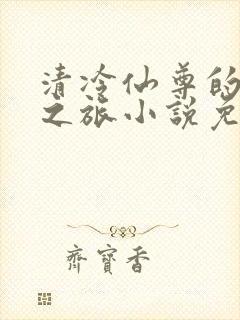 清冷仙尊的
之旅小說免
齊寶香